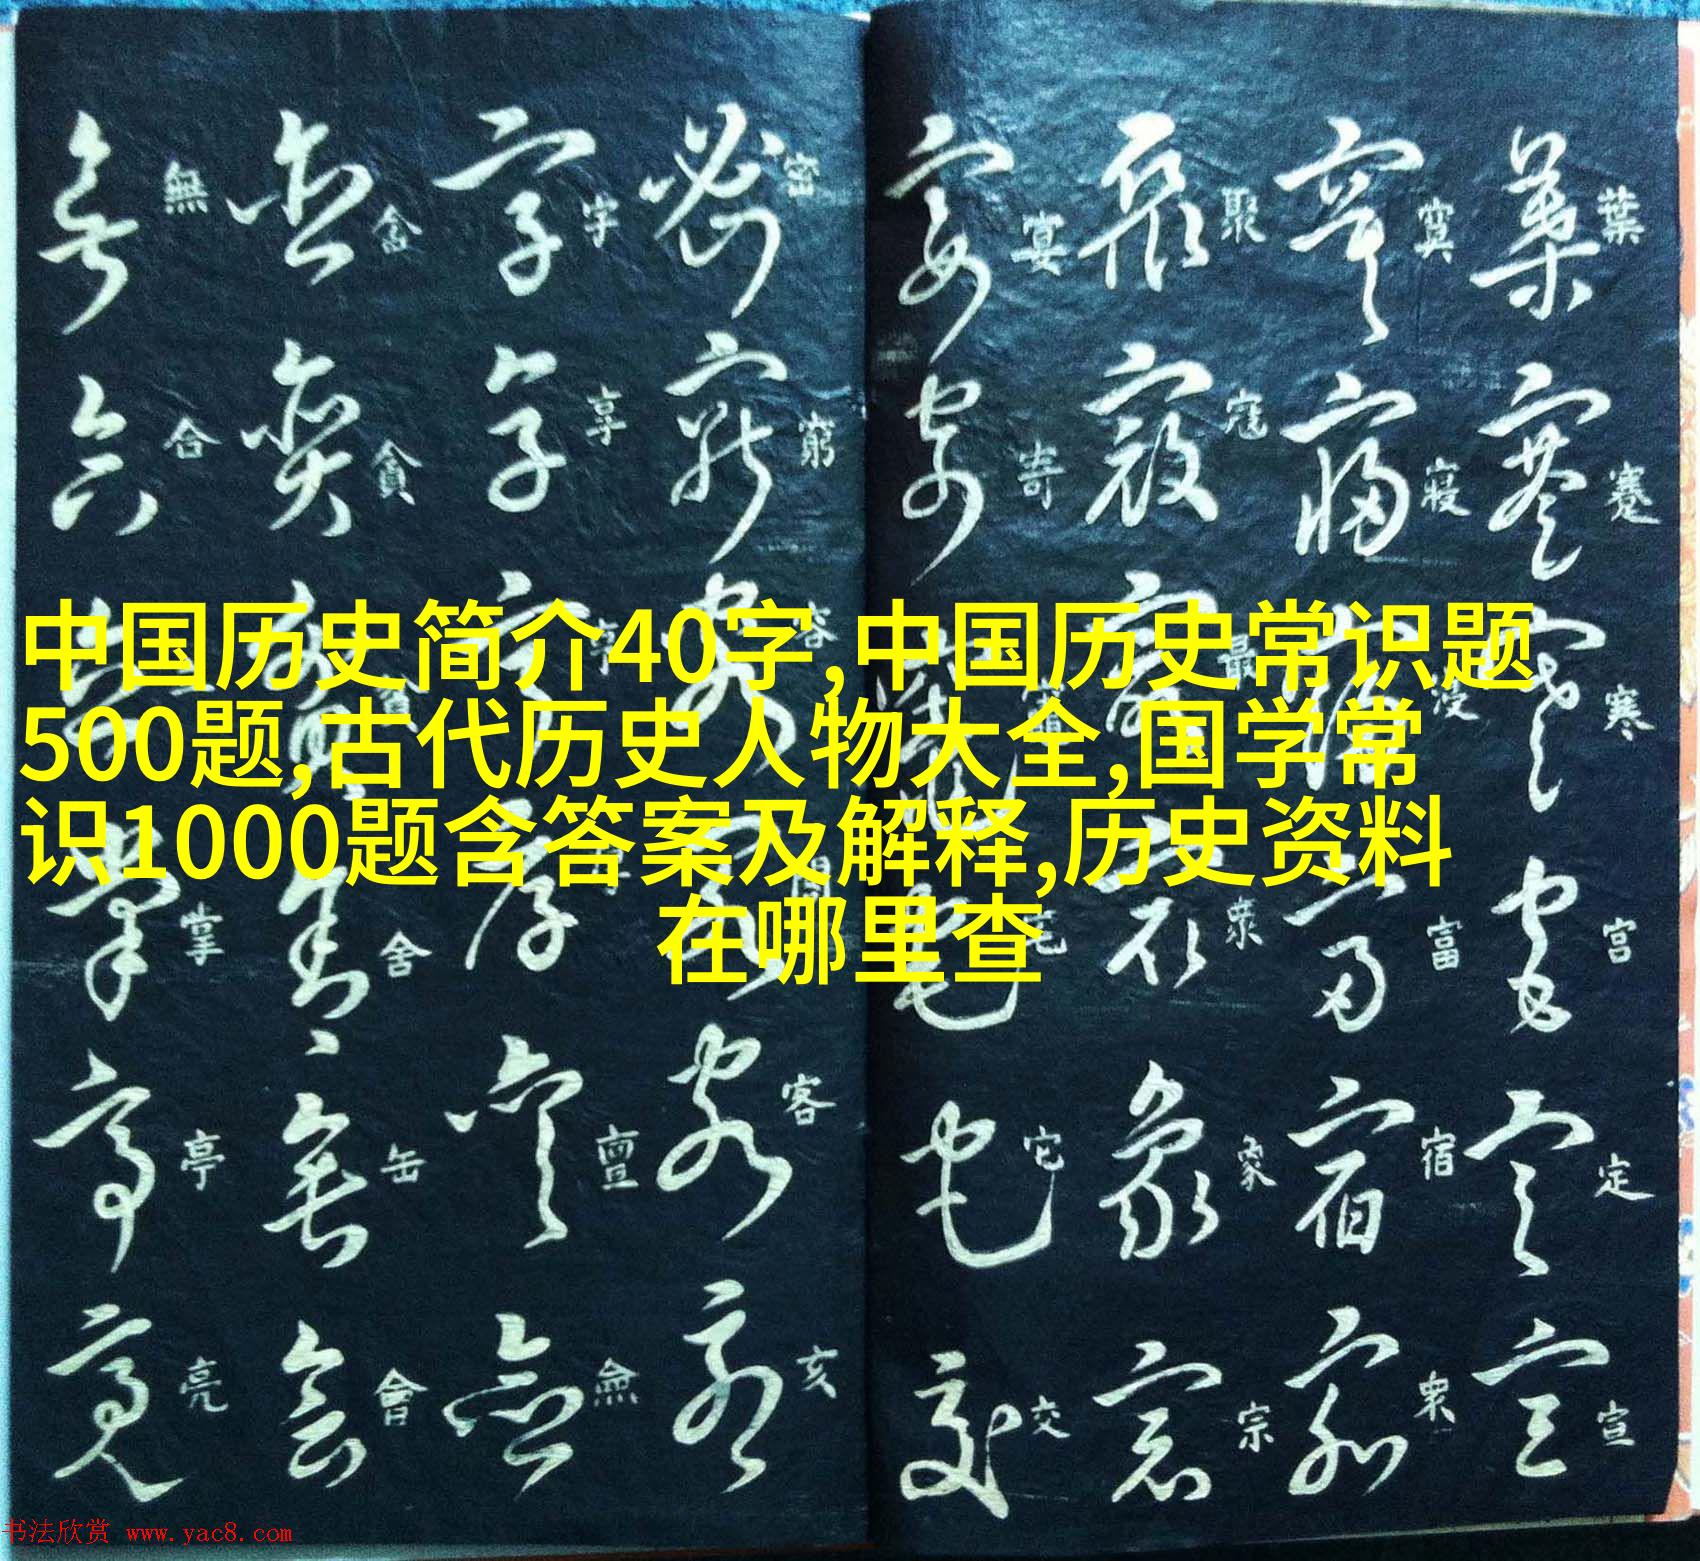 中国历史简介40字,中国历史常识题
500题,古代历史人物大全,国学常
识1000题含答案及解释,历史资料
在哪里查
葉 蹇 寒 宫 定 宣
寞 寢 富 宿
聚 寇 最 家 宗
宴 寄 它 交
密 窮 容 客 亥
字 享 亶 僉
貪 舍 缶 會
無 合 掌 亭 亮
书法欣赏 www.yac8.com